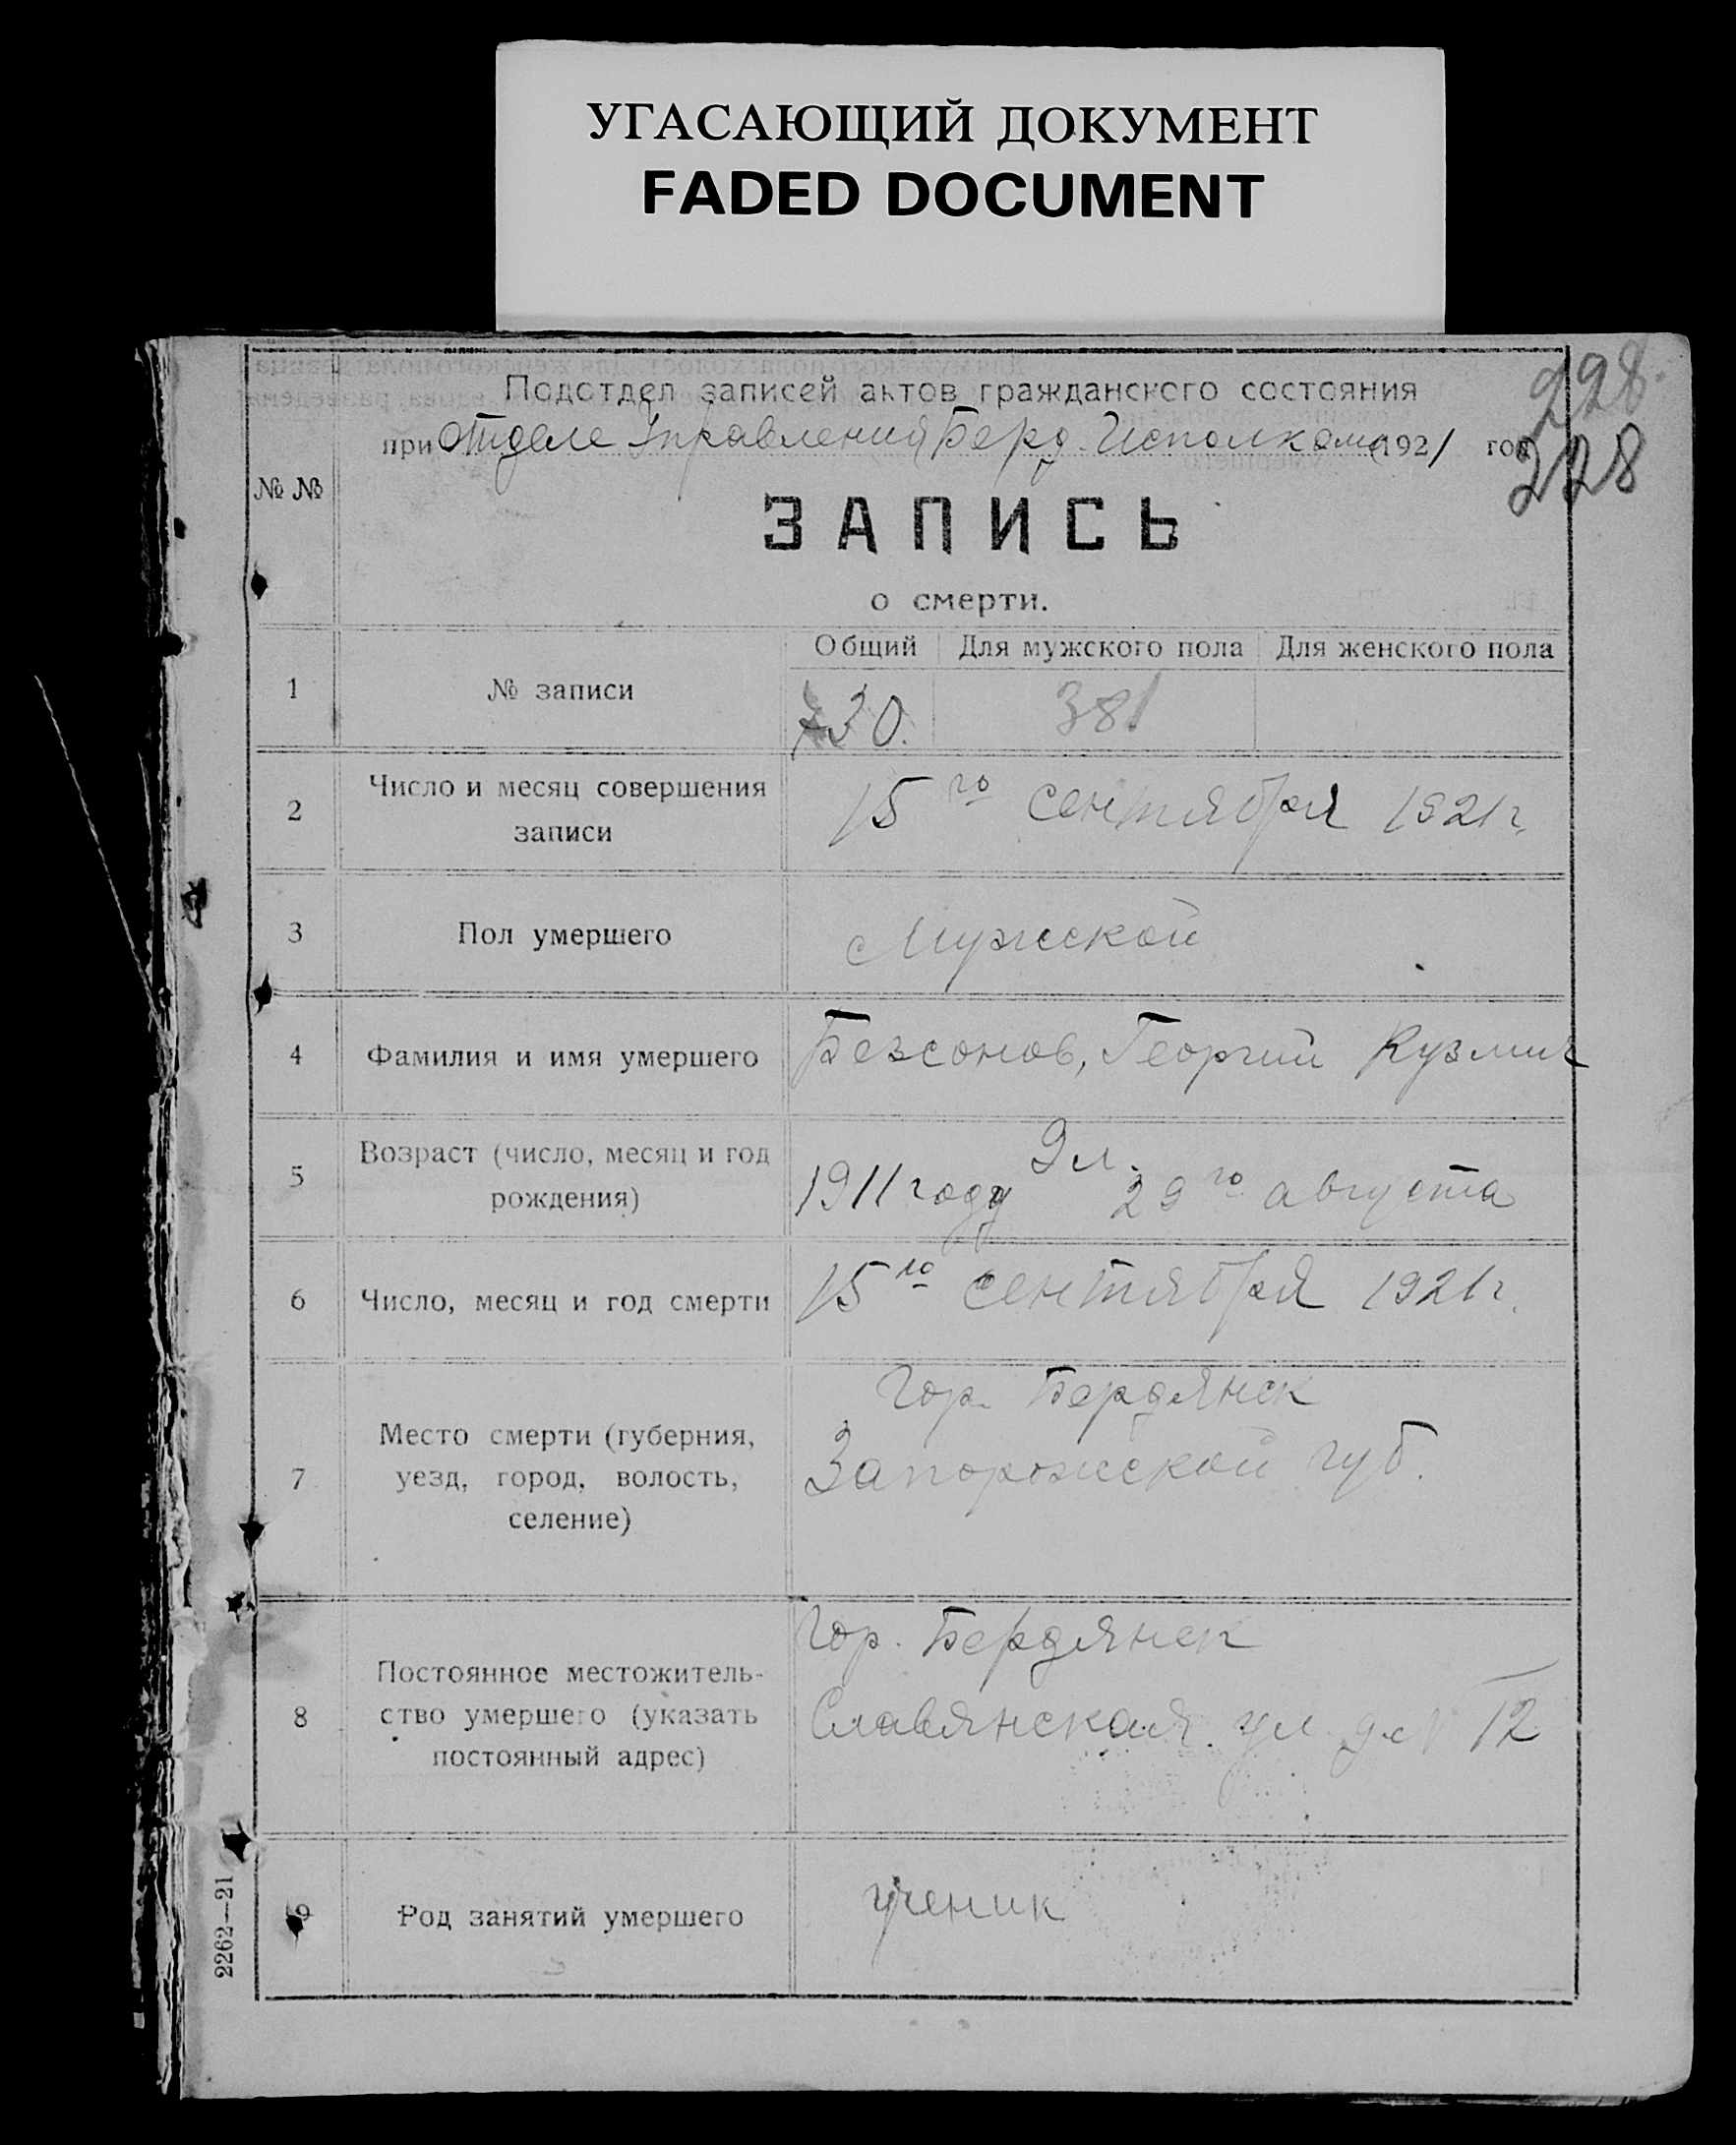 УГАСАЮЩИЙ ДОКУМЕНТ
FADED DOCUMENT
228
Подотдел записей актов гражданского состояния
при Отделе Управления Берд. Исполкома 1921 год
228
№ №
ЗАПИСЬ
о смерти.
Общий Для мужского пола Для женского пола
1 № записи 730. 381
2 Число и месяц совершения
записи
15го сентября 1921 г.
3 Пол умершего Мужской
4 Фамилия и имя умершего Безсонов, Георгий Кузмич
5 Возраст (число, месяц и год
рождения)
9 л.
1911 году 29го августа
6 Число, месяц и год смерти 15го сентября 1921 г.
7 Место смерти (губерния,
уезд, город, волость,
селение)
Гор. Бердянск
Запорожской губ.
8 Постоянное местожитель-
ство умершего (указать
постоянный адрес)
Гор. Бердянск
Славянская ул. 12
9 Род занятий умершего ученик
2262—21